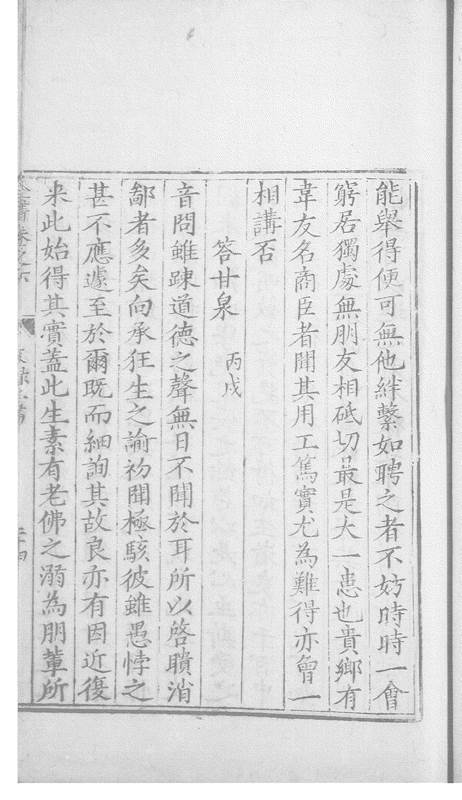 能舉得便可無他絆繫如聘之者不妨時時一會
窮居獨處無朋友相砥切最是大一患也貴鄉有
韋友名商臣者聞其用工篤實尤為難得亦曾一
相講否
答甘泉 丙戌
音問雖踈道德之聲無日不聞於耳所以啓瞶消
鄙者多矣向承狂生之諭初聞極駭彼雖愚悖之
甚不應遽至於爾既而細詢其故良亦有因近復
来此始得其實盖此生素有老佛之溺為朋輩所